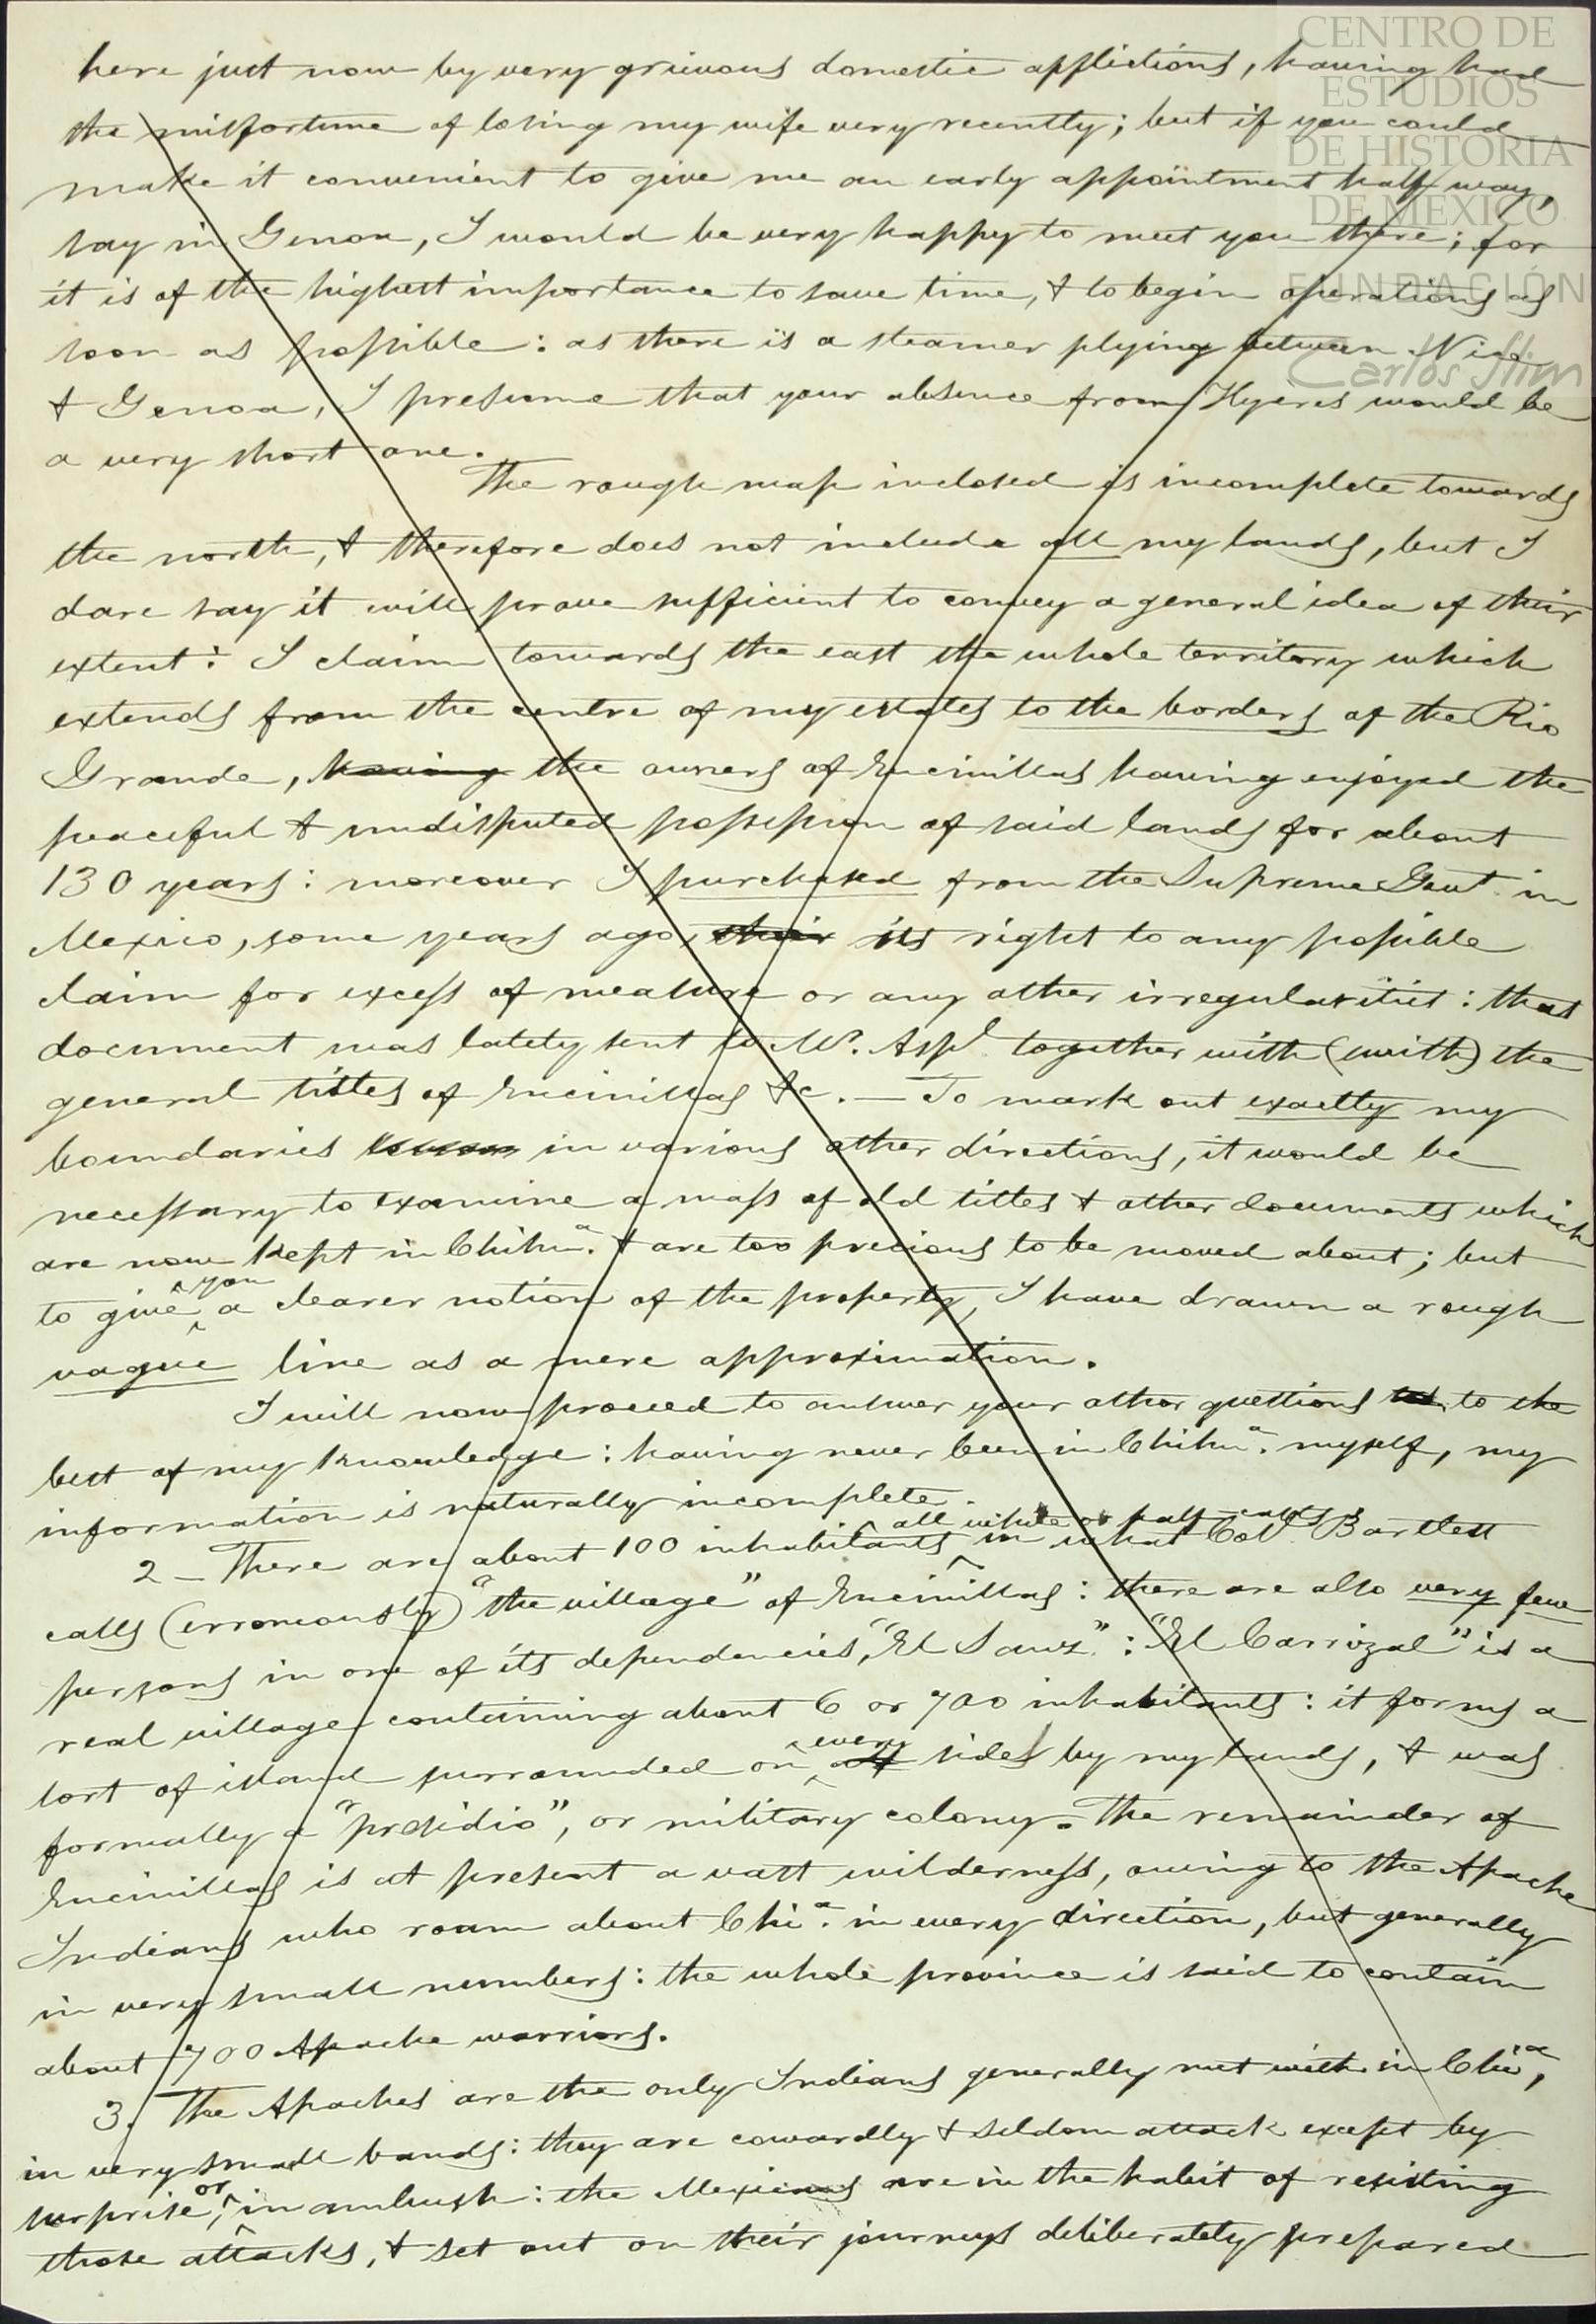 CENTRO DE
ESTUDIOS
DE HISTORIA
DE MEXICO
FUNDACIÓN
Carlos Slim
here just now by very grievous domestic afflictions, having had
the misfortune of losing my wife very recently; but if you could
make it convenient to give me an early appointment half way,
say in Genoa, I would be very happy to meet you there; for
it is of the highest importance to save time, & to begin operations as
soon as possible: as there is a steamer plying between Nice
& Genoa, I presume that your absence from Hyeres would be
a very short one.
The rough map inclosed is incomplete towards
the north, & therefore does not include all my lands, but I
dare say it will prove sufficient to convey a general idea of their
extent: I claim towards the east the whole territory which
extends from the centre of my estates to the borders of the Rio
Grande, having the owners of Encinillas having enjoyed the
peaceful & undisputed possession of said lands for about
130 years: moreover I purchased from the Supreme Govt. in
Mexico, some years ago, their its right to any possible
claim for excess of measure or any other irregularities: that
document was lately sent to Mr. Aspl. together with (with) the
general titles of Encinillas &c. — To mark out exactly my
boundaries in various other directions, it would be
necessary to examine a mass of old titles & other documents which
are now kept in Chihua. & are too precious to be moved about; but
to give you a clearer notion of the property, I have drawn a rough
vague line as a mere approximation.
I will now proceed to answer your other questions to the
best of my knowledge: having never been in Chihua. myself, my
information is naturally incomplete.
2 – There are about 100 inhabitants all white or half-casts in what Col. Bartlett
calls (erroneously) "the village" of Encinillas: there are also very few
persons in one of its dependencies, "El Sauz": "El Carrizal" is a
real village containing about 6 or 700 inhabitants: it forms a
sort of island surrounded on every all sides by my lands, & was
formally a "presidio", or military colony. The remainder of
Encinillas is at present a vast wilderness, owing to the Apache
Indians who roam about Chia. in every direction, but generally
in very small numbers: the whole province is said to contain
about 700 Apache warriors.
3. The Apaches are the only Indians generally met with in Chia,
in very small bands: they are cowardly & seldom attack except by
surprise, or in ambush: the Mexicans are in the habit of resisting
those attacks, & set out on their journeys deliberately prepared